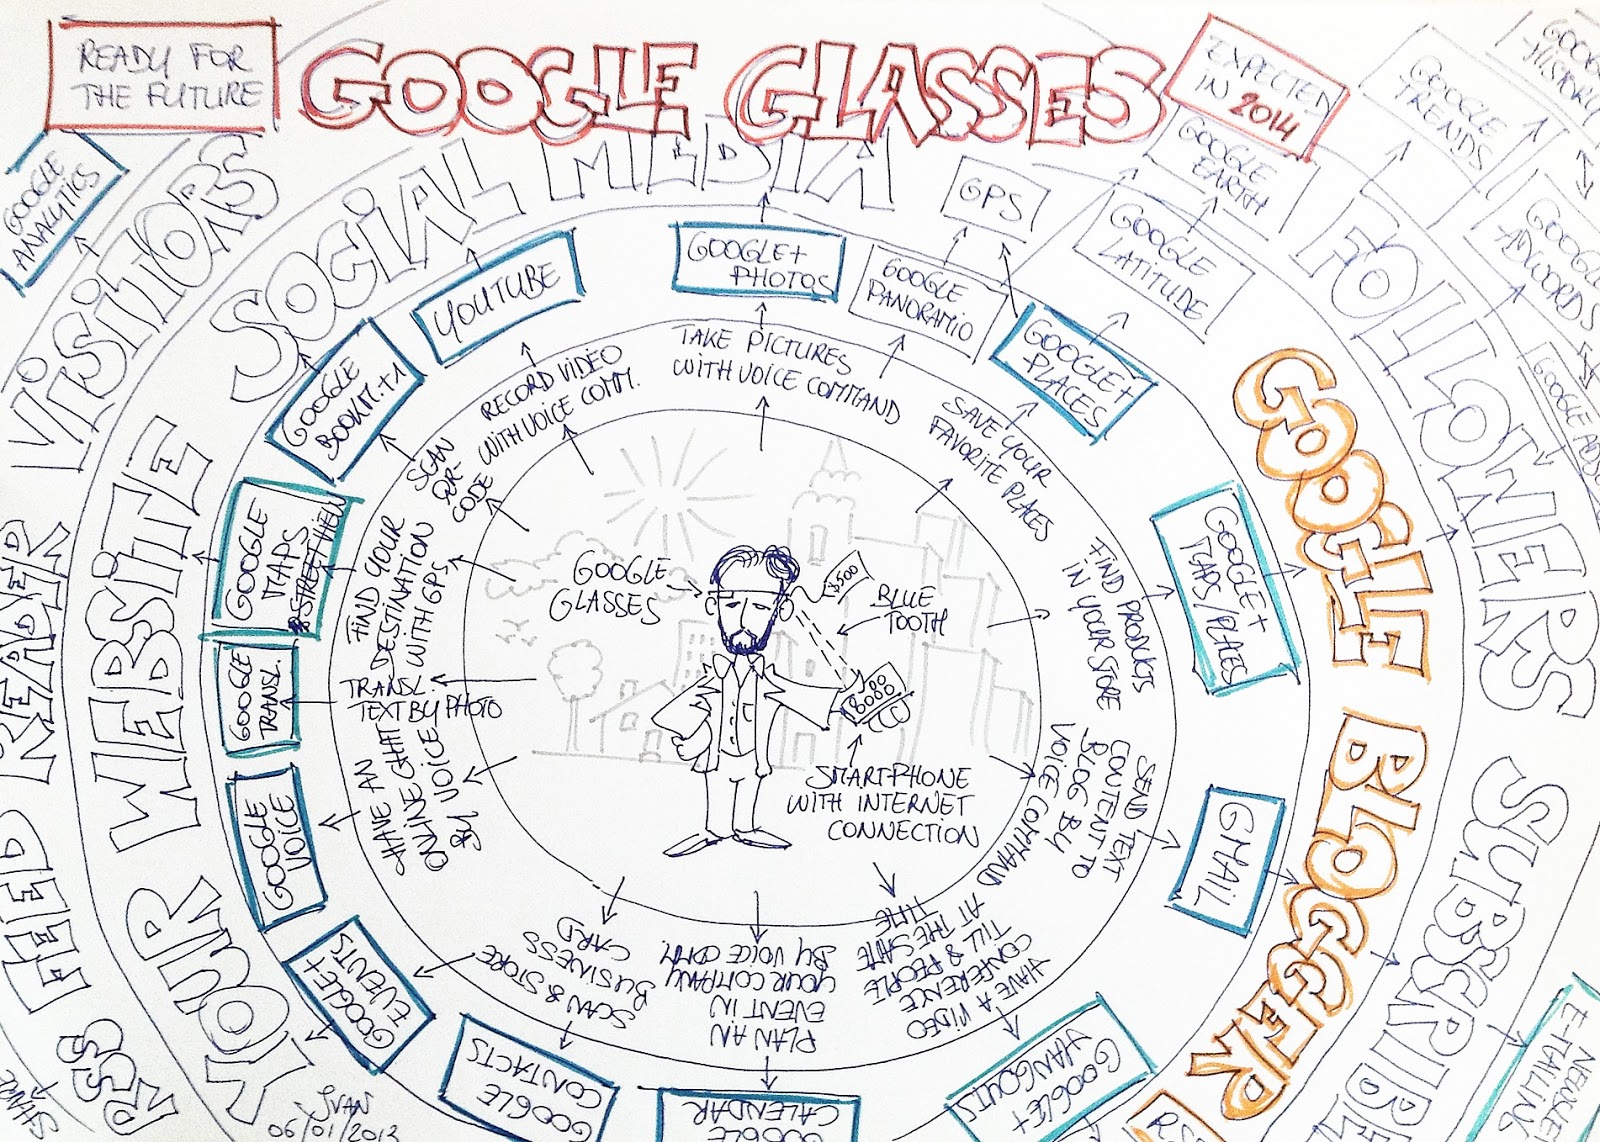 READY FOR
THE FUTURE
GOOGLE GLASSES
EXPECTED
IN 2014
GOOGLE
ANALYTICS
VISITORS
SOCIAL MEDIA
FOLLOWERS
SUBSCRIBE
RSS FEED READER
YOUR WEBSITE
GOOGLE BLOGGER
GOOGLE
TRENDS
HISTORY
GOOGLE
-ADWORDS
GOOGLE
EARTH
GOOGLE
LATITUDE
GPS
GOOGLE
PANORAMIO
GOOGLE+
PHOTOS
YOUTUBE
GOOGLE
BOOKM.+1
GOOGLE
MAPS
STREETVIEW
GOOGLE
TRANSL.
GOOGLE
VOICE
GOOGLE+
EVENTS
GOOGLE
CONTACTS
GOOGLE
CALENDAR
GOOGLE+
HANGOUTS
GMAIL
GOOGLE+
MAPS/PLACES
GOOGLE+
-PLACES
TAKE PICTURES
WITH VOICE COMMAND
SAVE YOUR
FAVORITE PLACES
FIND PRODUCTS
IN YOUR STORE
SEND TEXT
CONTENT TO
BLOG BY
VOICE COMMAND
HAVE A VIDEO
CONFERENCE
TILL 8 PEOPLE
AT THE SAME
TIME
PLAN AN
EVENT IN
YOUR COMPANY
BY VOICE COMM.
SCAN & STORE
BUSINESS
CARD
HAVE AN
ONLINE CHAT
BY VOICE
TRANSL.
TEXT BY PHOTO
FIND YOUR
DESTINATION
WITH GPS
SCAN
QR-
CODE
RECORD VIDEO
WITH VOICE COMM.
GOOGLE
GLASSES
$500
BLUE
TOOTH
SMARTPHONE
WITH INTERNET
CONNECTION
SHARE
JVAN
06/01/2013
E-MAILING